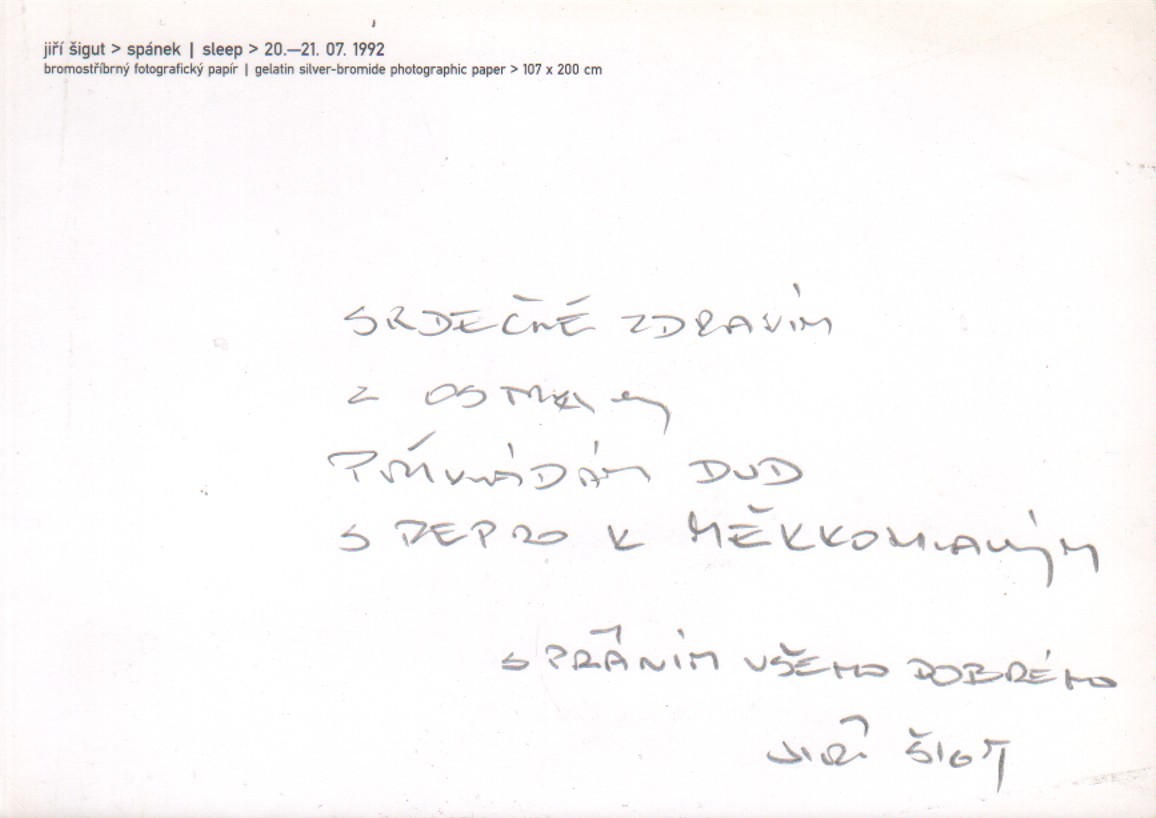 jiří šigut > spánek | sleep > 20.—21. 07. 1992
bromostříbrný fotografický papír | gelatin silver-bromide photographic paper > 107 x 200 cm
SRDEČNĚ ZDRAVÍM
Z OSTRAVY
PŘIKLÁDÁM DVD
S REPRO K MĚKKOHLAVÝM
S PŘÁNÍM VŠEHO DOBRÉHO
JIŘÍ ŠIGUT